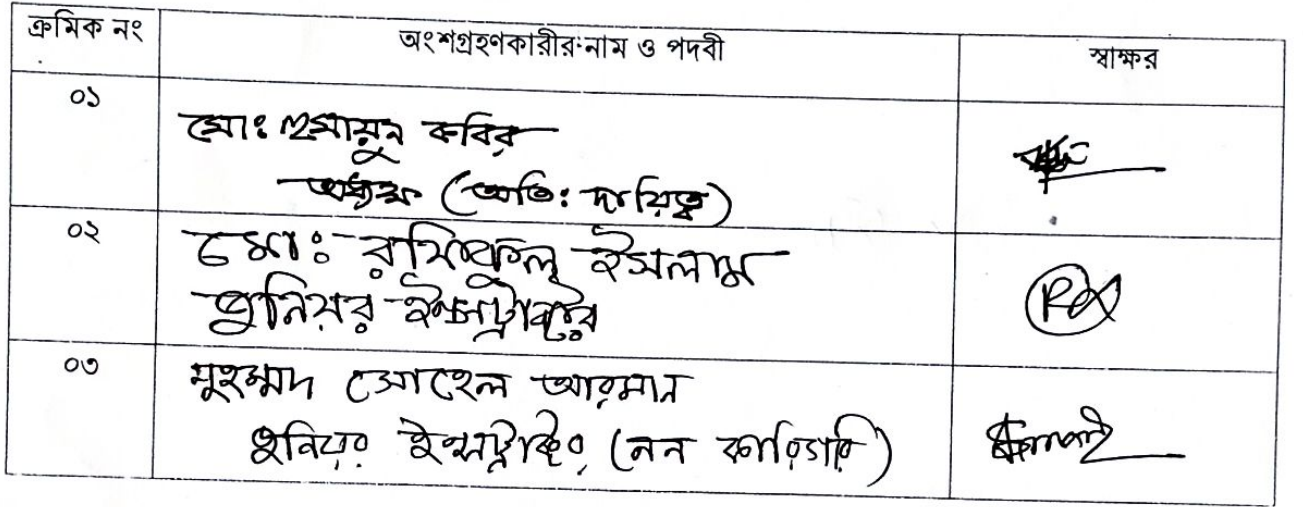 ক্রমিক নং অংশগ্রহণকারীর নাম ও পদবী স্বাক্ষর
০১ মোঃ হুমায়ুন কবির
অধ্যক্ষ (অতিঃ দায়িত্ব)
০২ মোঃ রফিকুল ইসলাম
জুনিয়র ইন্সট্রাক্টর
০৩ মুহম্মদ সোহেল আরমান
জুনিয়র ইন্সট্রাক্টর (নন কারিগরি)